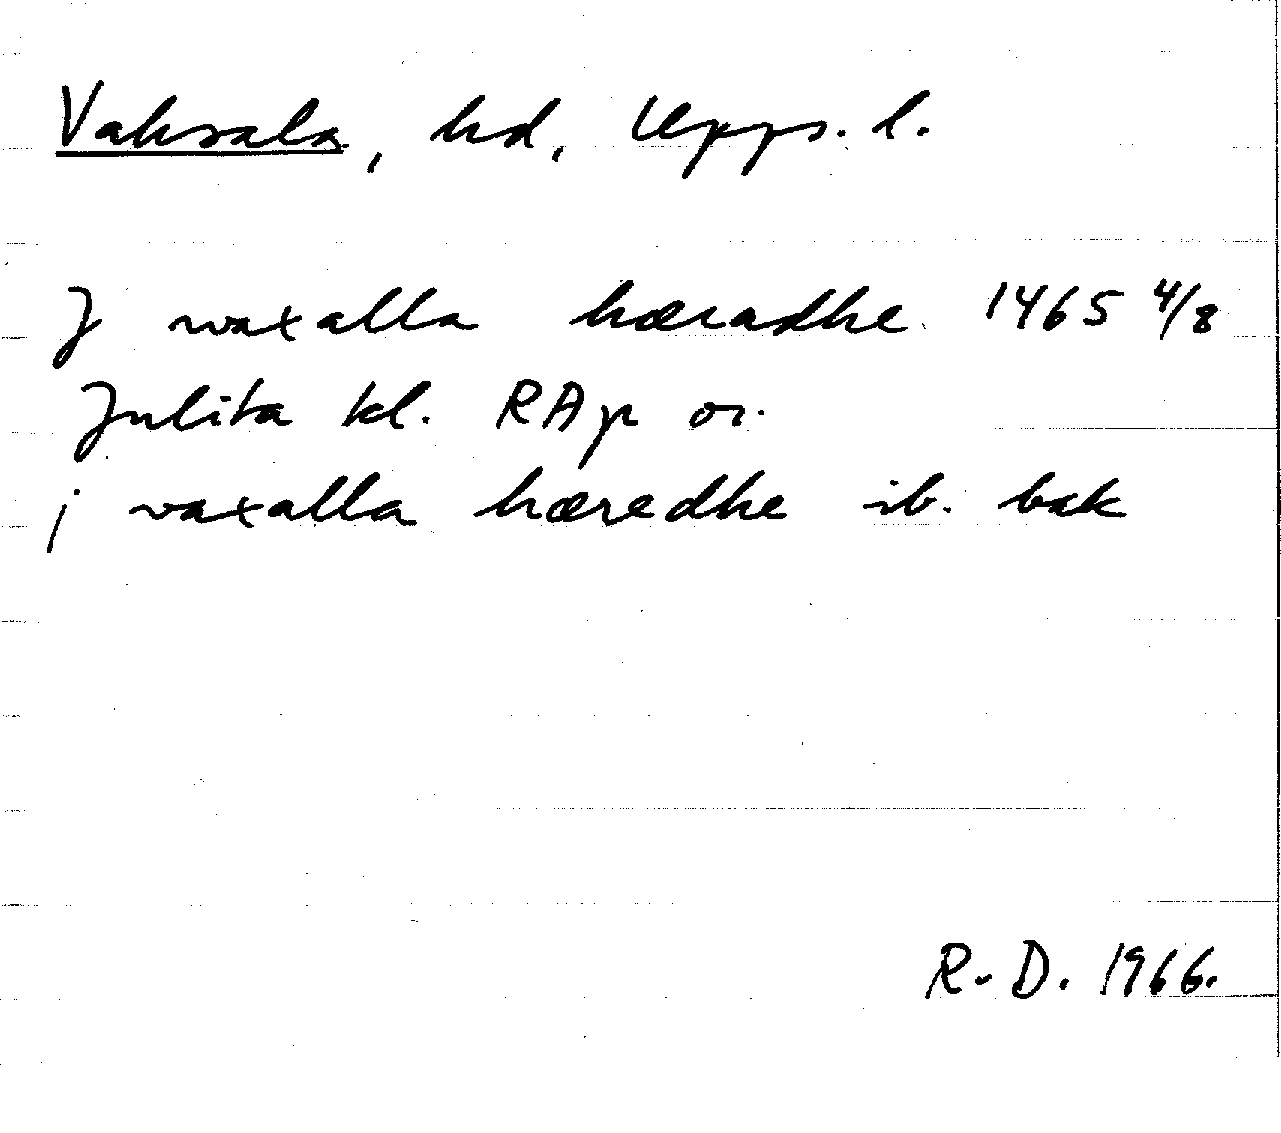 Vaksala, hd, Upps. l.
J waxalla hæradhe 1465 4/8
Julita kl. RAp or.
j vaxalla hæredhe ib. bak
R.D. 1966.